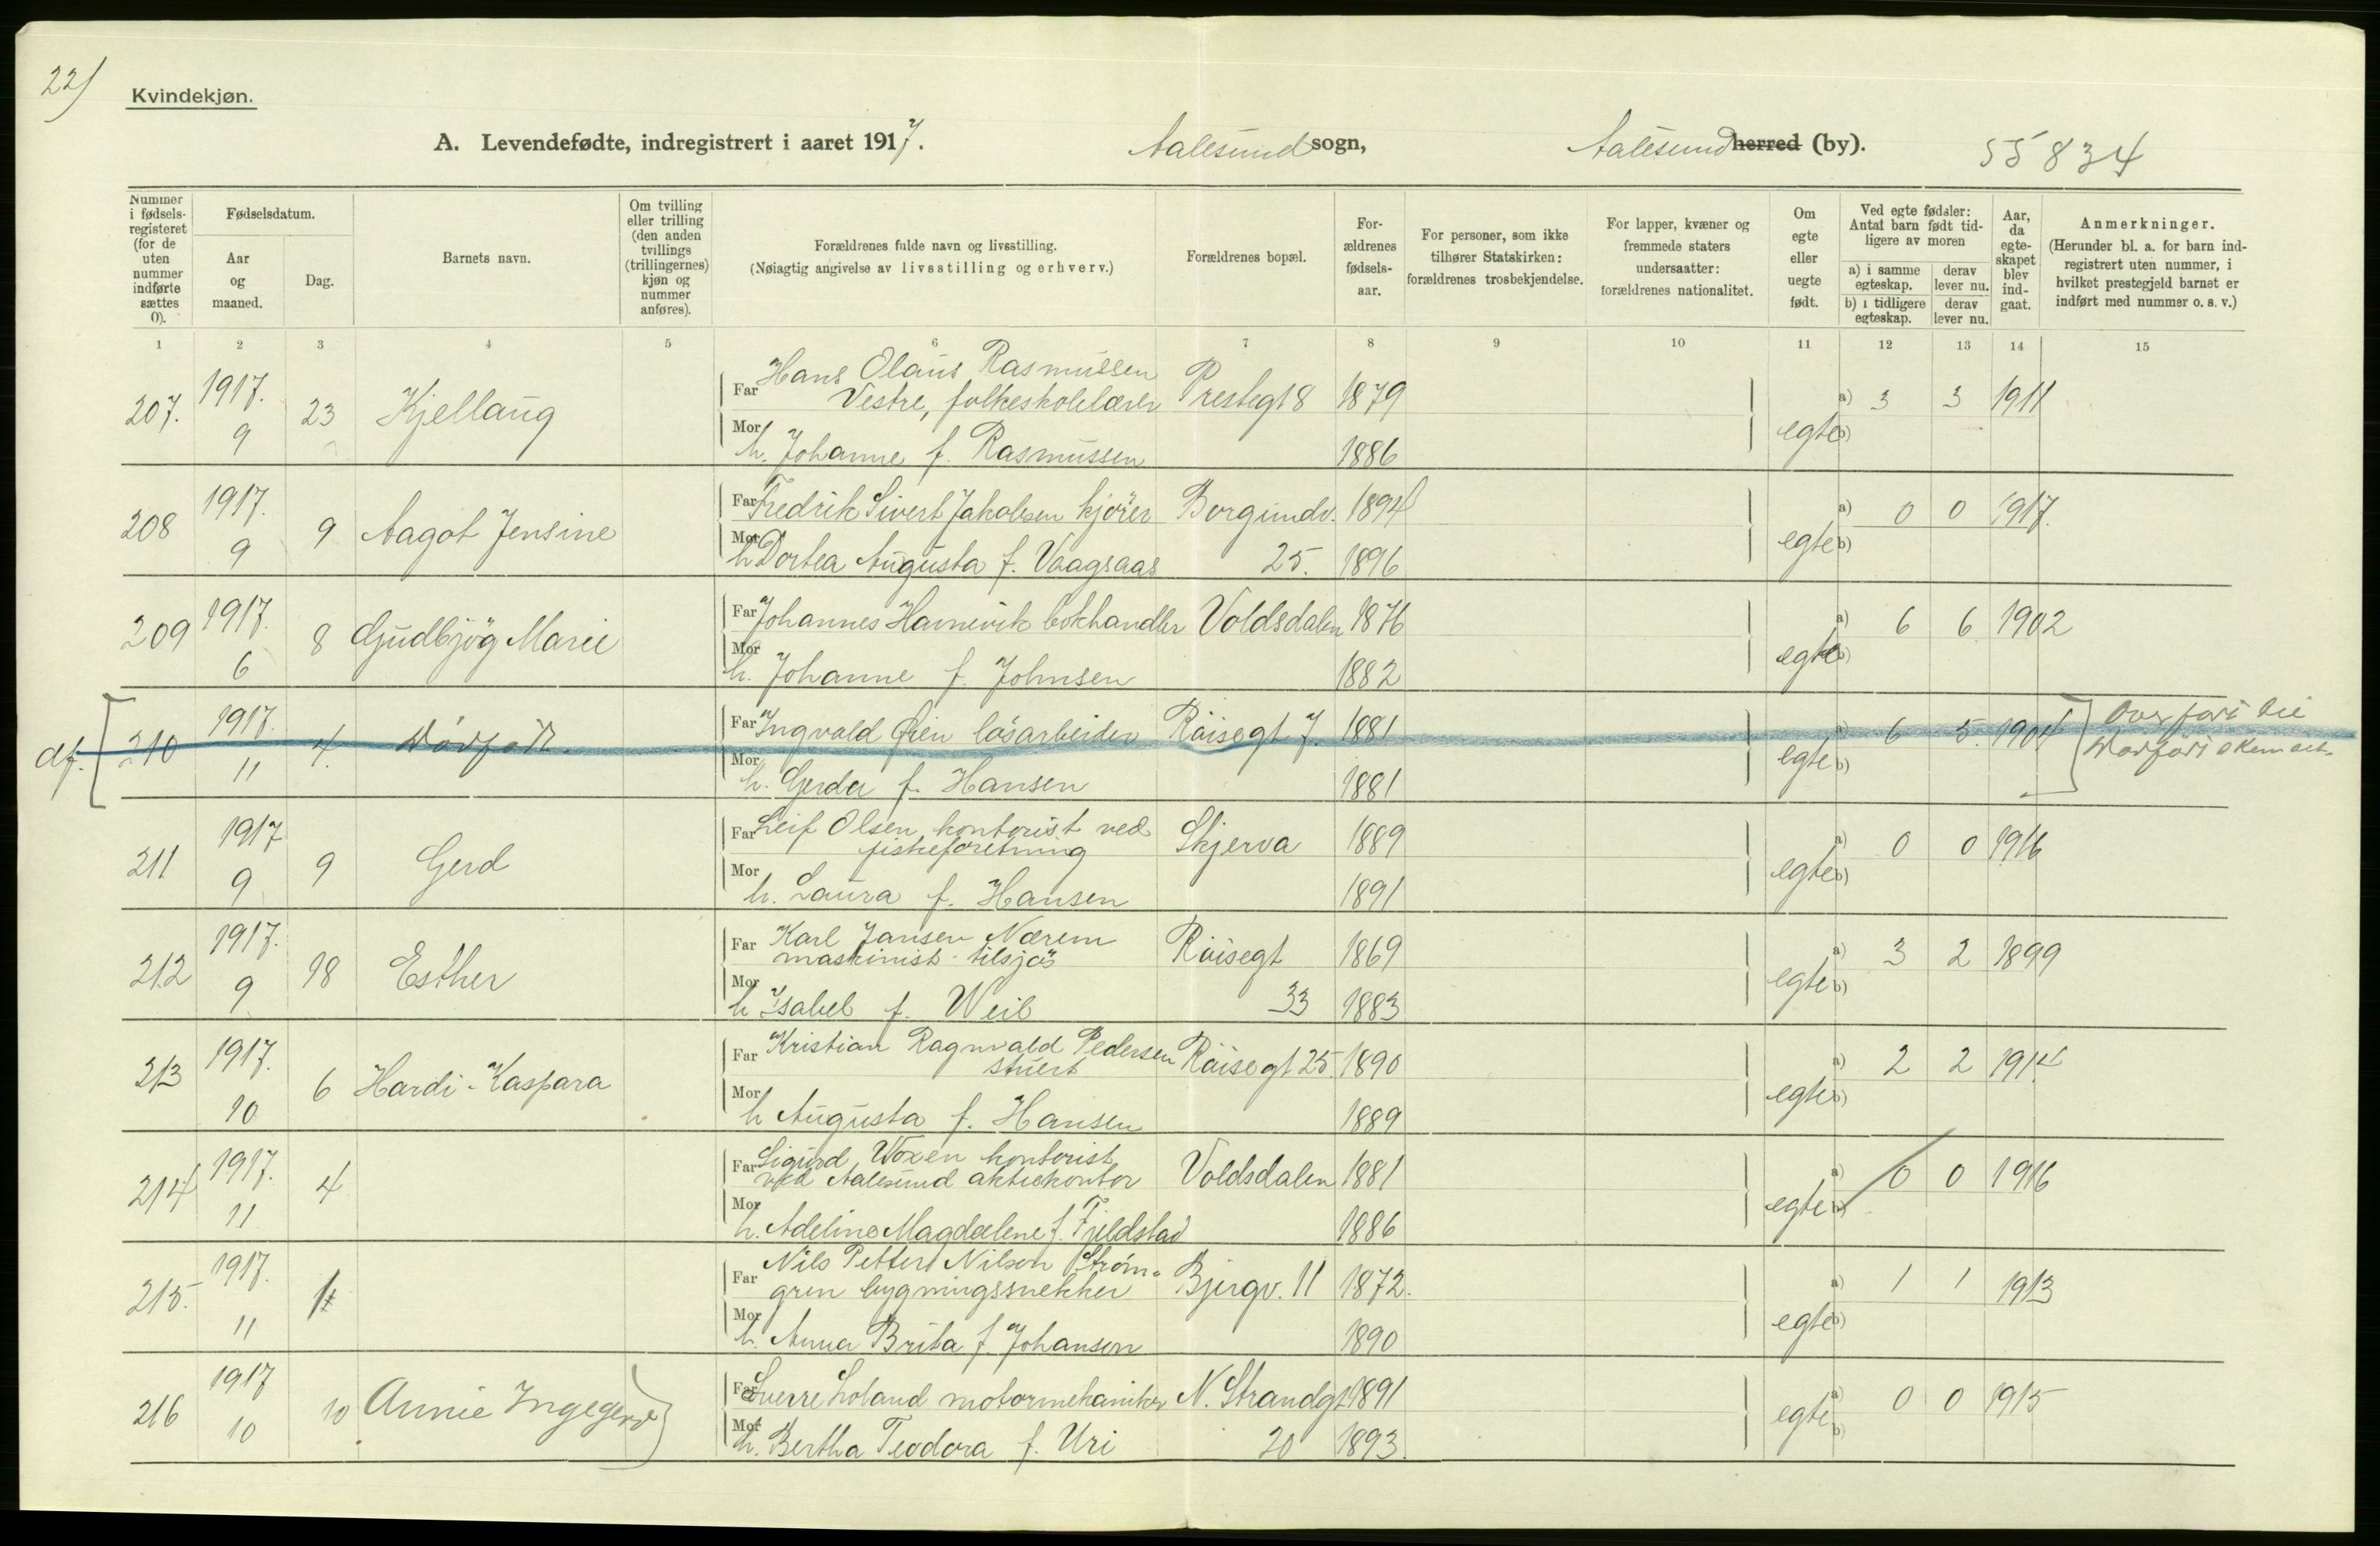 22)
Kvindekjøn.
A. Levendefødte, indregistrert i aaret 1917. Aalesund sogn, Aalesund herred (by). 55834
Nummer i fødselsregisteret (for de uten nummer indførte sættes 0).
Fødselsdatum.
Aar og maaned.
Dag.
Barnets navn.
Om tvilling eller trilling (den anden tvillings (trillingernes) kjøn og nummer anføres).
Forældrenes fulde navn og livsstilling.
(Nøiagtig angivelse av livsstilling og erhverv.)
Forældrenes bopæl.
Forældrenes fødselsaar.
For personer, som ikke tilhører Statskirken: forældrenes trosbekjendelse.
For lapper, kvæner og fremmede staters undersaatter: forældrenes nationalitet.
Om egte eller uegte født.
Ved egte fødsler: Antal barn født tidligere av moren
a) i samme egteskap. derav lever nu.
b) i tidligere egteskap. derav lever nu.
Aar, da egteskapet blev indgaat.
Anmerkninger.
(Herunder bl. a. for barn indregistrert uten nummer, i hvilket prestegjeld barnet er indført med nummer o. s. v.)
1 2 3 4 5 6 7 8 9 10 11 12 13 14 15
207. 1917. 9 23 Kjellaug
Far Hans Olaus Rasmussen Vestre, folkeskolelærer Prestegt 8 1879 egte a) 3 3 1911
Mor h. Johanne f. Rasmussen 1886 b)
208 1917. 9 9 Aagot Jensine
Far Fredrik Sivert Jakobsen kjører Borgundv. 1894 egte a) 0 0 1917.
Mor h Dortea Augusta f. Vaagsaas 25. 1896 b)
209 1917. 6 8 Gudbjøg Marie
Far Johannes Havnevik bokhandler Voldsdalen 1876 egte a) 6 6 1902
Mor h. Johanne f. Johnsen 1882 b)
df. 210 1917. 11 4. Dødfødt.
Far Ingvald Øien løsarbeider Røisegt 7. 1881 egte a) 6 5 1904 Overført til
Mor h. Gerda f. Hansen 1881 b)
211 1917 9 9 Gerd
Far Leif Olsen, kontorist ved fiskeforetning Skjerva 1889 egte a) 0 0 1916
Mor h. Laura f. Hansen 1891 b)
212 1917. 9 18 Esther
Far Karl Jansen Nærem maskinist tilsjøs Røisegt 1869 egte a) 3 2 1899
Mor h Isabel f. Weib 33 1883 b)
213 1917. 10 6 Hardi-Kaspara
Far Kristian Ragnvald Pedersen stuert Røisegt 25. 1890 egte a) 2 2 1914
Mor h Augusta f. Hansen 1889 b)
214 1917. 11 4
Far Sigurd Woxen kontorist ved Aalesund aktiekontor Voldsdalen 1881 egte a) 0 0 1916
Mor h. Adeline Magdalene f. Fjeldstad 1886
215. 1917. 11 1
Far Nils Petter Nilson Strømgren bygningssnekker Bjergv. 11 1872. egte a) 1 1 1913
Mor h. Anna Brita f. Johanson 1890 b)
216 1917 10 10 Annie Ingegerd
Far Sverre Loland motormekaniker N. Strandgt 1891 egte a) 0 0 1915
Mor h. Bertha Teodora f. Uri 20 1893. b)